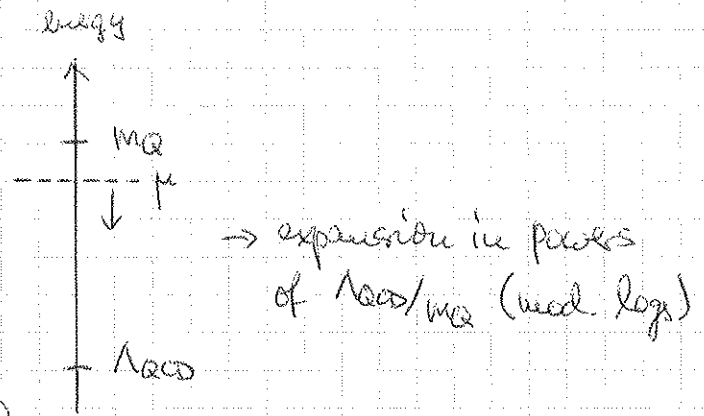 energy
mQ
μ
→ expansion in powers
of ΛQCD/mQ (mod. logs)
ΛQCD